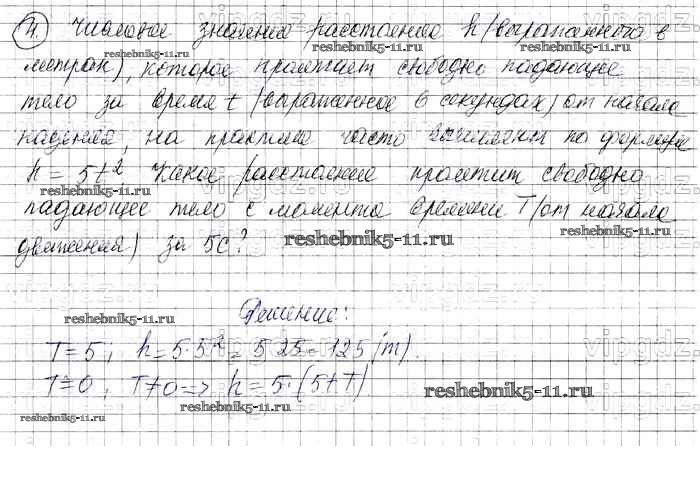 4. Численное значение расстояния h (выраженного в
метрах), которое пролетает свободно падающее
тело за время t (выраженное в секундах) от начала
падения, на практике часто вычисляют по формуле
h = 5t² Какое расстояние пролетит свободно
падающее тело с момента времени T (от начала
движения) за 5с?
Решение:
T = 5; h = 5·5² = 5·25 = 125 (m).
T = 0; T ≠ 0 => h = 5·(5+T)
reshebnik5-11.ru
reshebnik5-11.ru
reshebnik5-11.ru
reshebnik5-11.ru
reshebnik5-11.ru
reshebnik5-11.ru
reshebnik5-11.ru
reshebnik5-11.ru
reshebnik5-11.ru
vipgdz.ru